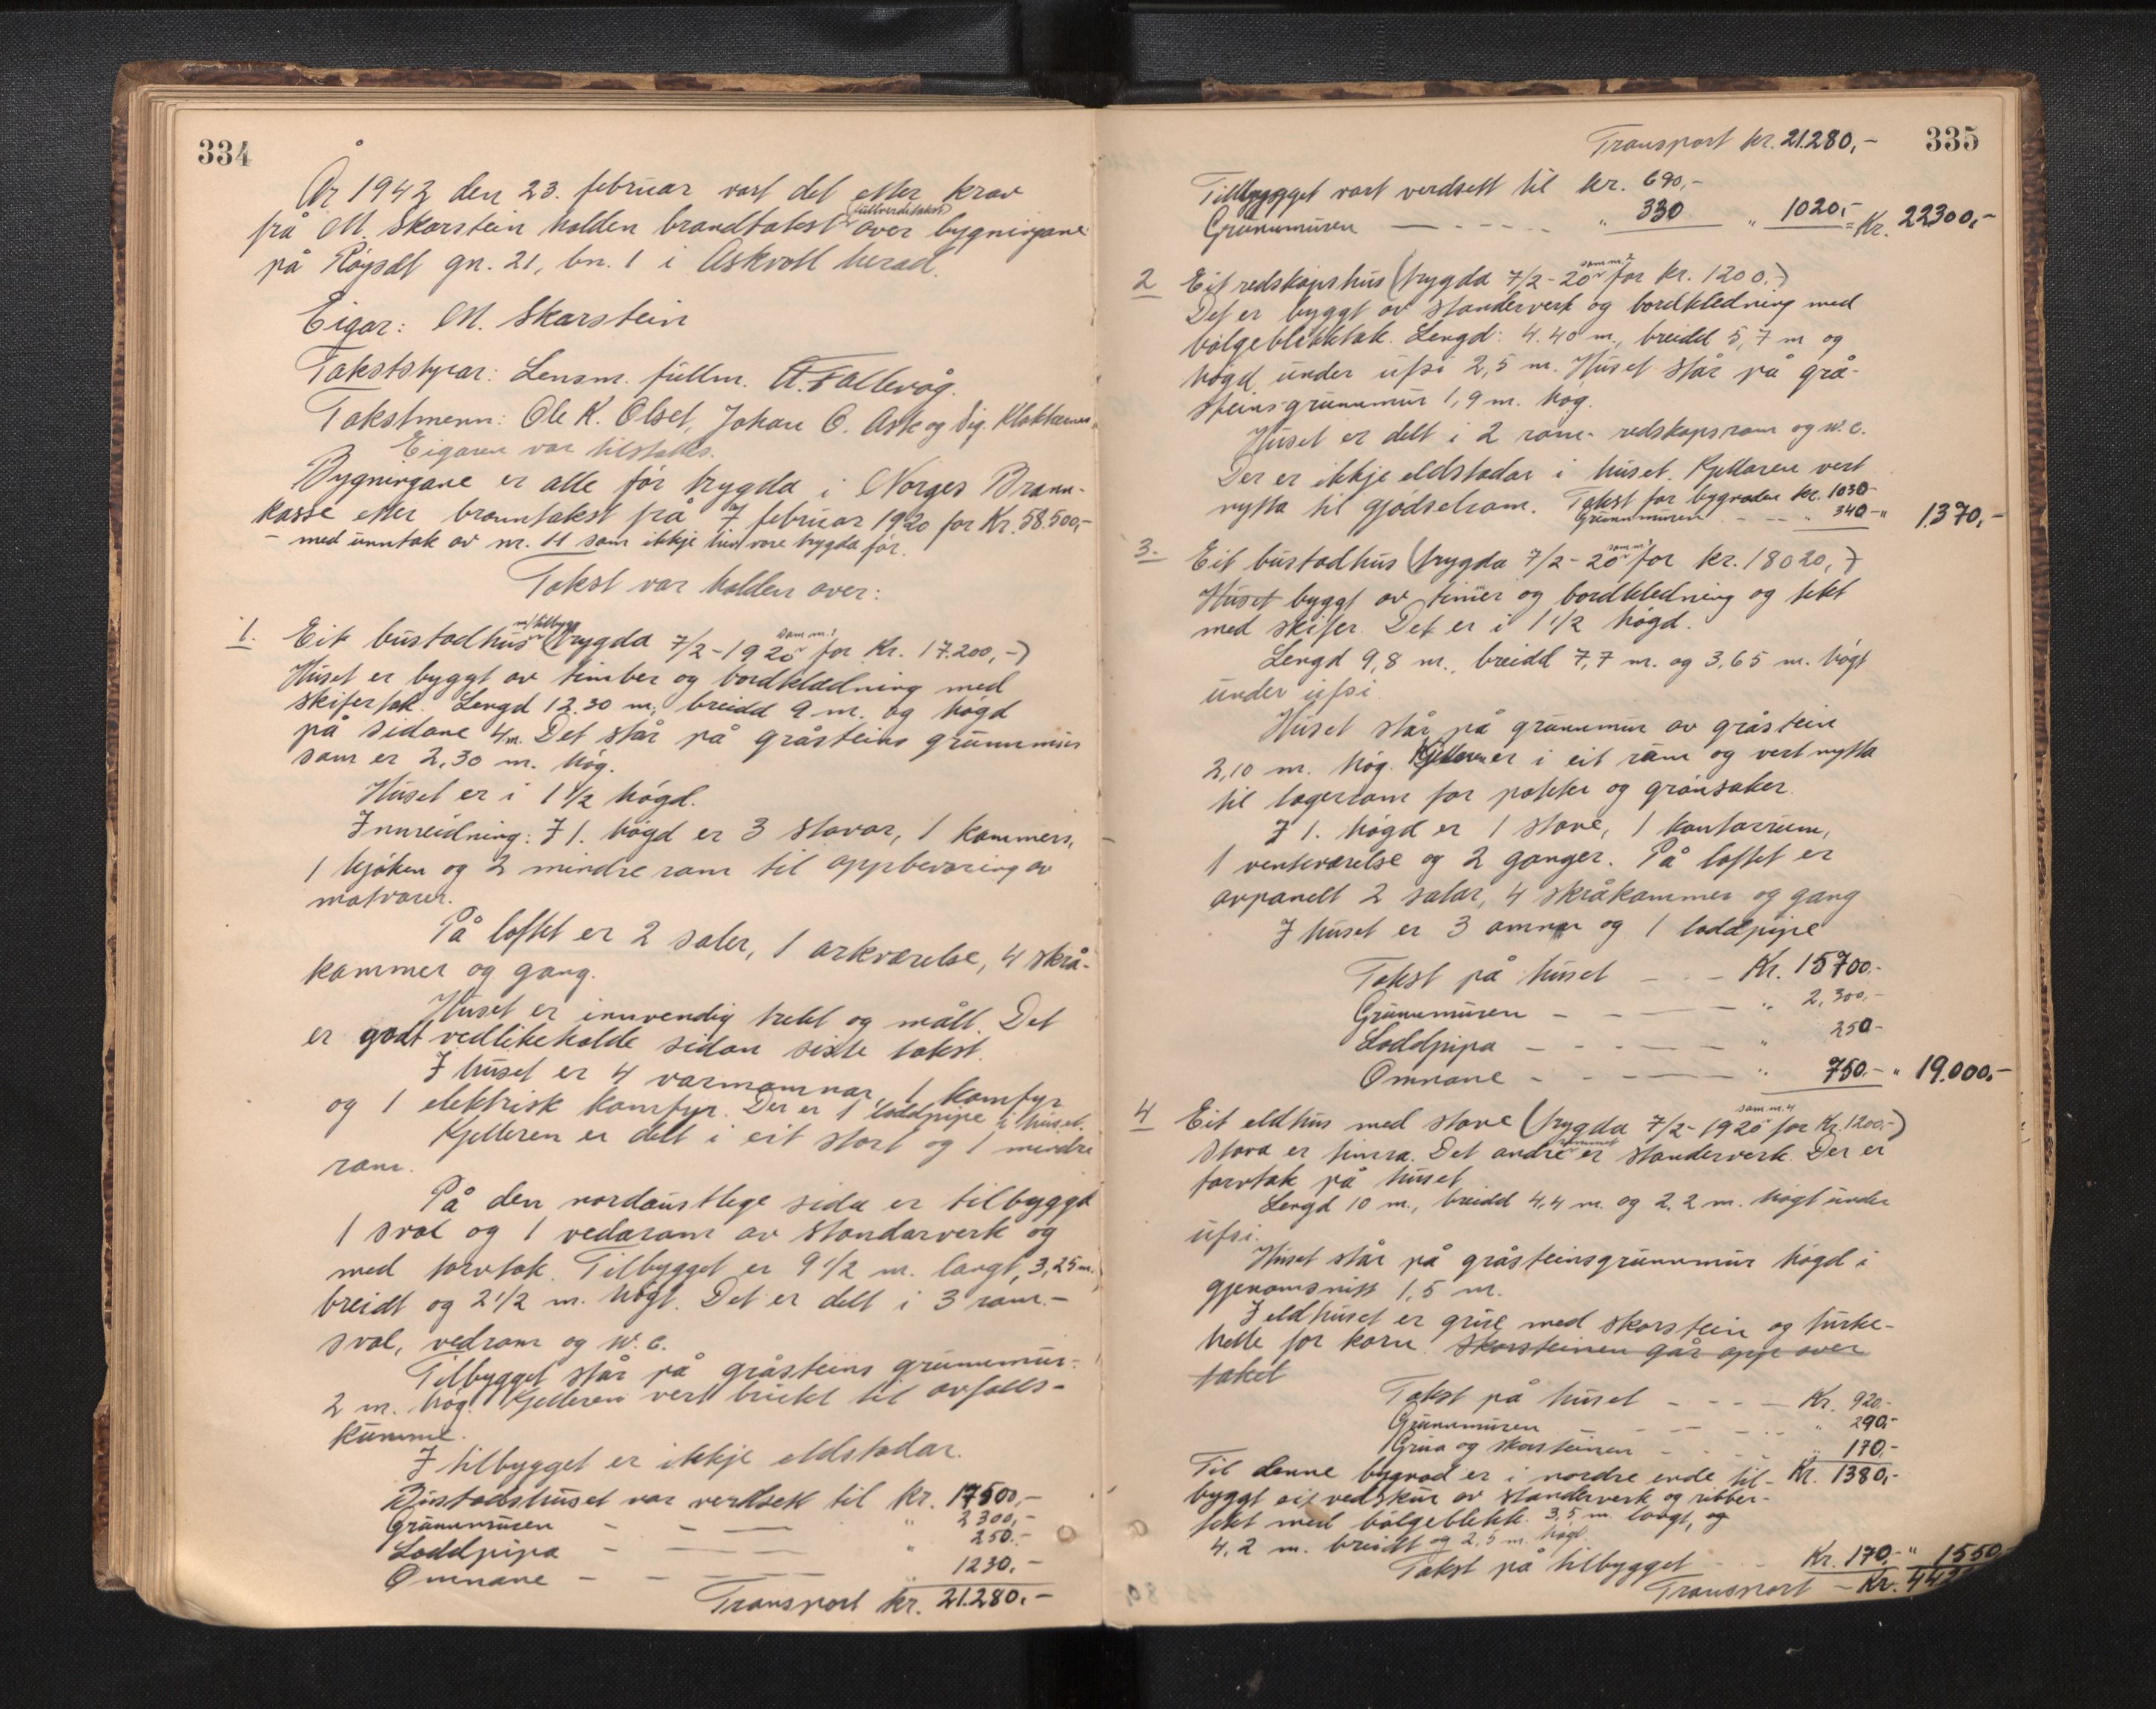 334
År 1942 den 23. februar vart det etter krav
frå M. Skarstein halden brandtakst (fullverditakst) over bygningane
på Røysdt gn. 21, bn. 1 i Askvoll herad.
Eigar: M. Skarstein
Takststyrar: Lensm. fullm. A. Fallevåg.
Takstmenn: Ole K. Olset, Johan O. Ask og Sig. Klokkernes.
Eigaren var tilstades.
Bygningane er alle før trygda i Norges Brann-
kasse etter branntakst frå 7 februar 1920 for Kr. 58.500,-
- med unntak av nr. 11 som ikkje har vore trygda før.
Takst var halden over:
1. Eit bustadhus m/tilbygg (trygda 7/2-1920 som nr. 1 for Kr. 17.200,-)
Huset er byggt av timber og bordklædning med
skifertak. Lengd 12.30 m, breidd 9 m. og høgd
på sidane 4 m. Det står på gråsteins grunnmur
som er 2,30 m. høg.
Huset er i 1 1/2 høgd.
Innreidning: I 1. høgd er 3 stovar, 1 kammers,
1 kjøken og 2 mindre rom til oppbevaring av
matvarer.
På loftet er 2 saler, 1 arkværelse, 4 skrå-
kammer og gang.
Huset er innvendig trekt og målt. Det
er godt vedlikeholde sidan siste takst.
I huset er 4 varmomnar, 1 komfyr
og 1 elektrisk komfyr. Der er 1 loddpipe i huset.
Kjelleren er delt i eit stort og 1 mindre
rom.
På den nordaustlege sida er tilbyggd
1 sval og 1 vedarom av standarverk og
med torvtak. Tilbygget er 9 1/2 m. langt, 3,25 m.
breidt og 2 1/2 m. høgt. Det er delt i 3 rom -
sval, vedrom og w.c.
Tilbygget står på gråsteins grunnmur
2 m. høg. Kjelleren vert brukt til avfalls-
kumme.
I tilbygget er ikkje eldstadar.
Bustadshuset var verdsett til Kr. 17500,-
Grunnmuren - - - " 2300,-
Loddpipa - - - " 250.-
Omnane - - - " 1230.-
Transport kr. 21.280.-
335
Transport kr. 21.280,-
Tilbygget vart verdsett til kr. 690,-
Grunnmuren - - - " 330 " 1020,- = Kr. 22300,-
2 Eit redskapshus (trygda 7/2-20 som nr. 2 for kr. 1200,-)
Det er byggt av standerverk og bordkledning med
bølgeblikktak. Lengd: 4.40 m., breidd 5,7 m og
høgd under ufsi 2,5 m. Huset står på grå-
steinsgrunnmur 1,9 m. høg.
Huset er delt i 2 rom - redskapsrom og w.c.
Der er ikkje eldstadar i huset. Kjellaren vert
nytta til gjødselrom. Takst for bygnaden kr. 1030-
Grunnmuren - - " 340-" 1.370,-
3. Eit bustadhus (trygda 7/2-20 som nr. for kr. 18020,-)
Huset byggt av timer og bordkledning og tekt
med skifer. Det er i 1 1/2 høgd.
Lengd 9,8 m., breidd 7,7 m. og 3,65 m. høgt
under ufsi.
Huset står på grunnmur av gråstein
2,10 m. høg. Kjelleren er i eit rom og vert nytta
til lagerrom for poteter og grønsaker.
I 1. høgd er 1 stove, 1 kontorrum,
1 venteværelse og 2 ganger. På loftet er
avpanelt 2 salar, 4 skråkammer og gang
I huset er 3 omnar og 1 loddpipe
Takst på huset - - - Kr. 15700.-
Grunnmuren - - - " 2.300,-
Loddpipa - - - " 250-
Omnane - - - " 750.- " 19.000.-
4 Eit eldhus med stove (trygda 7/2-1920 som nr. 4 for Kr. 1200.-)
Stova er timra. Det andre rommet er standerverk. Der er
torvtak på huset
Lengd 10 m., breidd 4,4 m. og 2,2 m. høgt under
ufsi.
Huset står på gråsteinsgrunnmur høgd i
gjenomsnitt 1,5 m.
I eldhuset er grue med skorstein og turke-
helle for korn. Skorsteinen går opp over
taket
Takst på huset - - - Kr. 920.-
Grunnmuren - - - " 290.-
Grua og skorsteinen - - - " 170.-
Til denne bygnad er i nordre ende til- Kr. 1380,-
byggt eit vedskur av standerverk og ribber-
tekt med bølgeblekk. 3,5 m. langt, og
4,2 m. breidt og 2,5 m. høgt.
Takst på tilbygget - - Kr. 170,- " 1550
Transport - Kr. 442